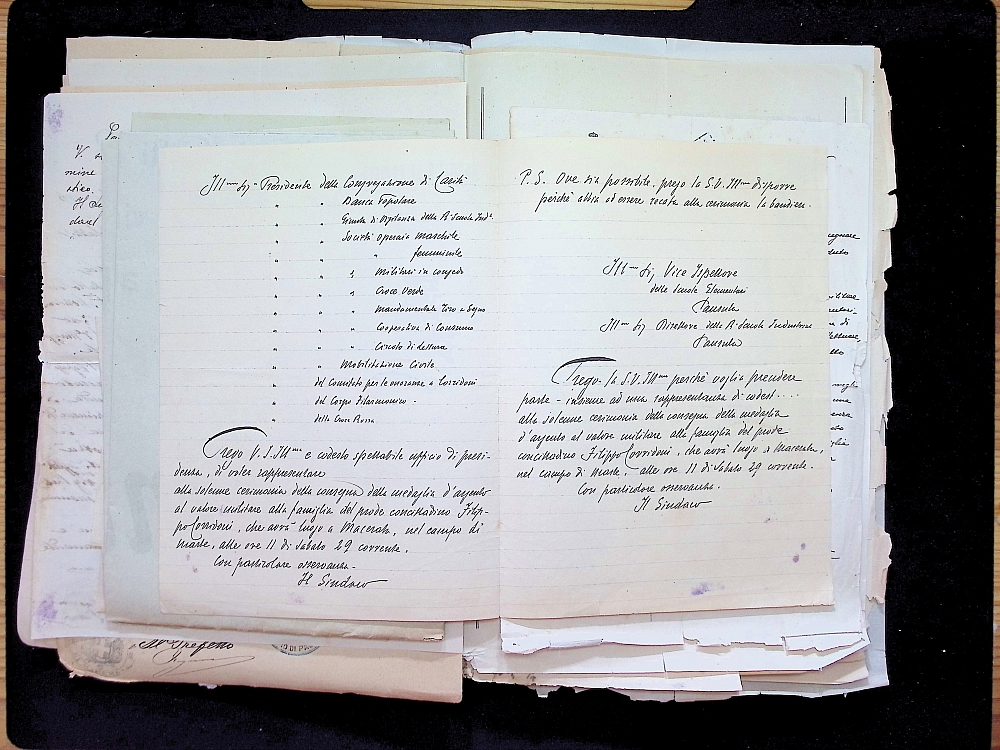 Ill.mo Sig.r Presidente della Congregazione di Carità
" " Banca Popolare
" " Giunta di Vigilanza della R. Scuola Ind.e
" " Società Operaia Maschile
" " " femminile
" " " Militari in congedo
" " " Croce Verde
" " " Mandamentale Tiro a Segno
" " " Cooperativa di Consumo
" " " Circolo di Lettura
" " Mobilitazione Civile
" del Comitato per le onoranze a Corridoni
" del Corpo Filarmonico -
" della Croce Rossa
Prego V. S. Ill.ma e codesto spettabile ufficio di presi-
denza, di voler rappresentare
alla solenne cerimonia della consegna della medaglia d'argento
al valore militare alla famiglia del prode concittadino Filip-
po Corridoni, che avrà luogo a Macerata, nel campo di
Marte, alle ore 11 di Sabato 29 corrente.
Con particolare osservanza -
Il Sindaco
P. S. Ove sia possibile, prego la S. V. Ill.ma disporre
perchè abbia ad essere recata alla cerimonia la bandiera.
Ill.mo Sig. Vice Ispettore
delle Scuole Elementari
Pausula
Ill.mo Sig. Direttore della R. Scuola Industriale
Pausula
Prego la S. V. Ill.ma perchè voglia prendere
parte - insieme ad una rappresentanza di codest....
alla solenne cerimonia della consegna della medaglia
d'argento al valore militare alla famiglia del prode
concittadino Filippo Corridoni, che avrà luogo a Macerata,
nel campo di Marte, alle ore 11 di Sabato 29 corrente.
Con particolare osservanza.
Il Sindaco
Il Prefetto